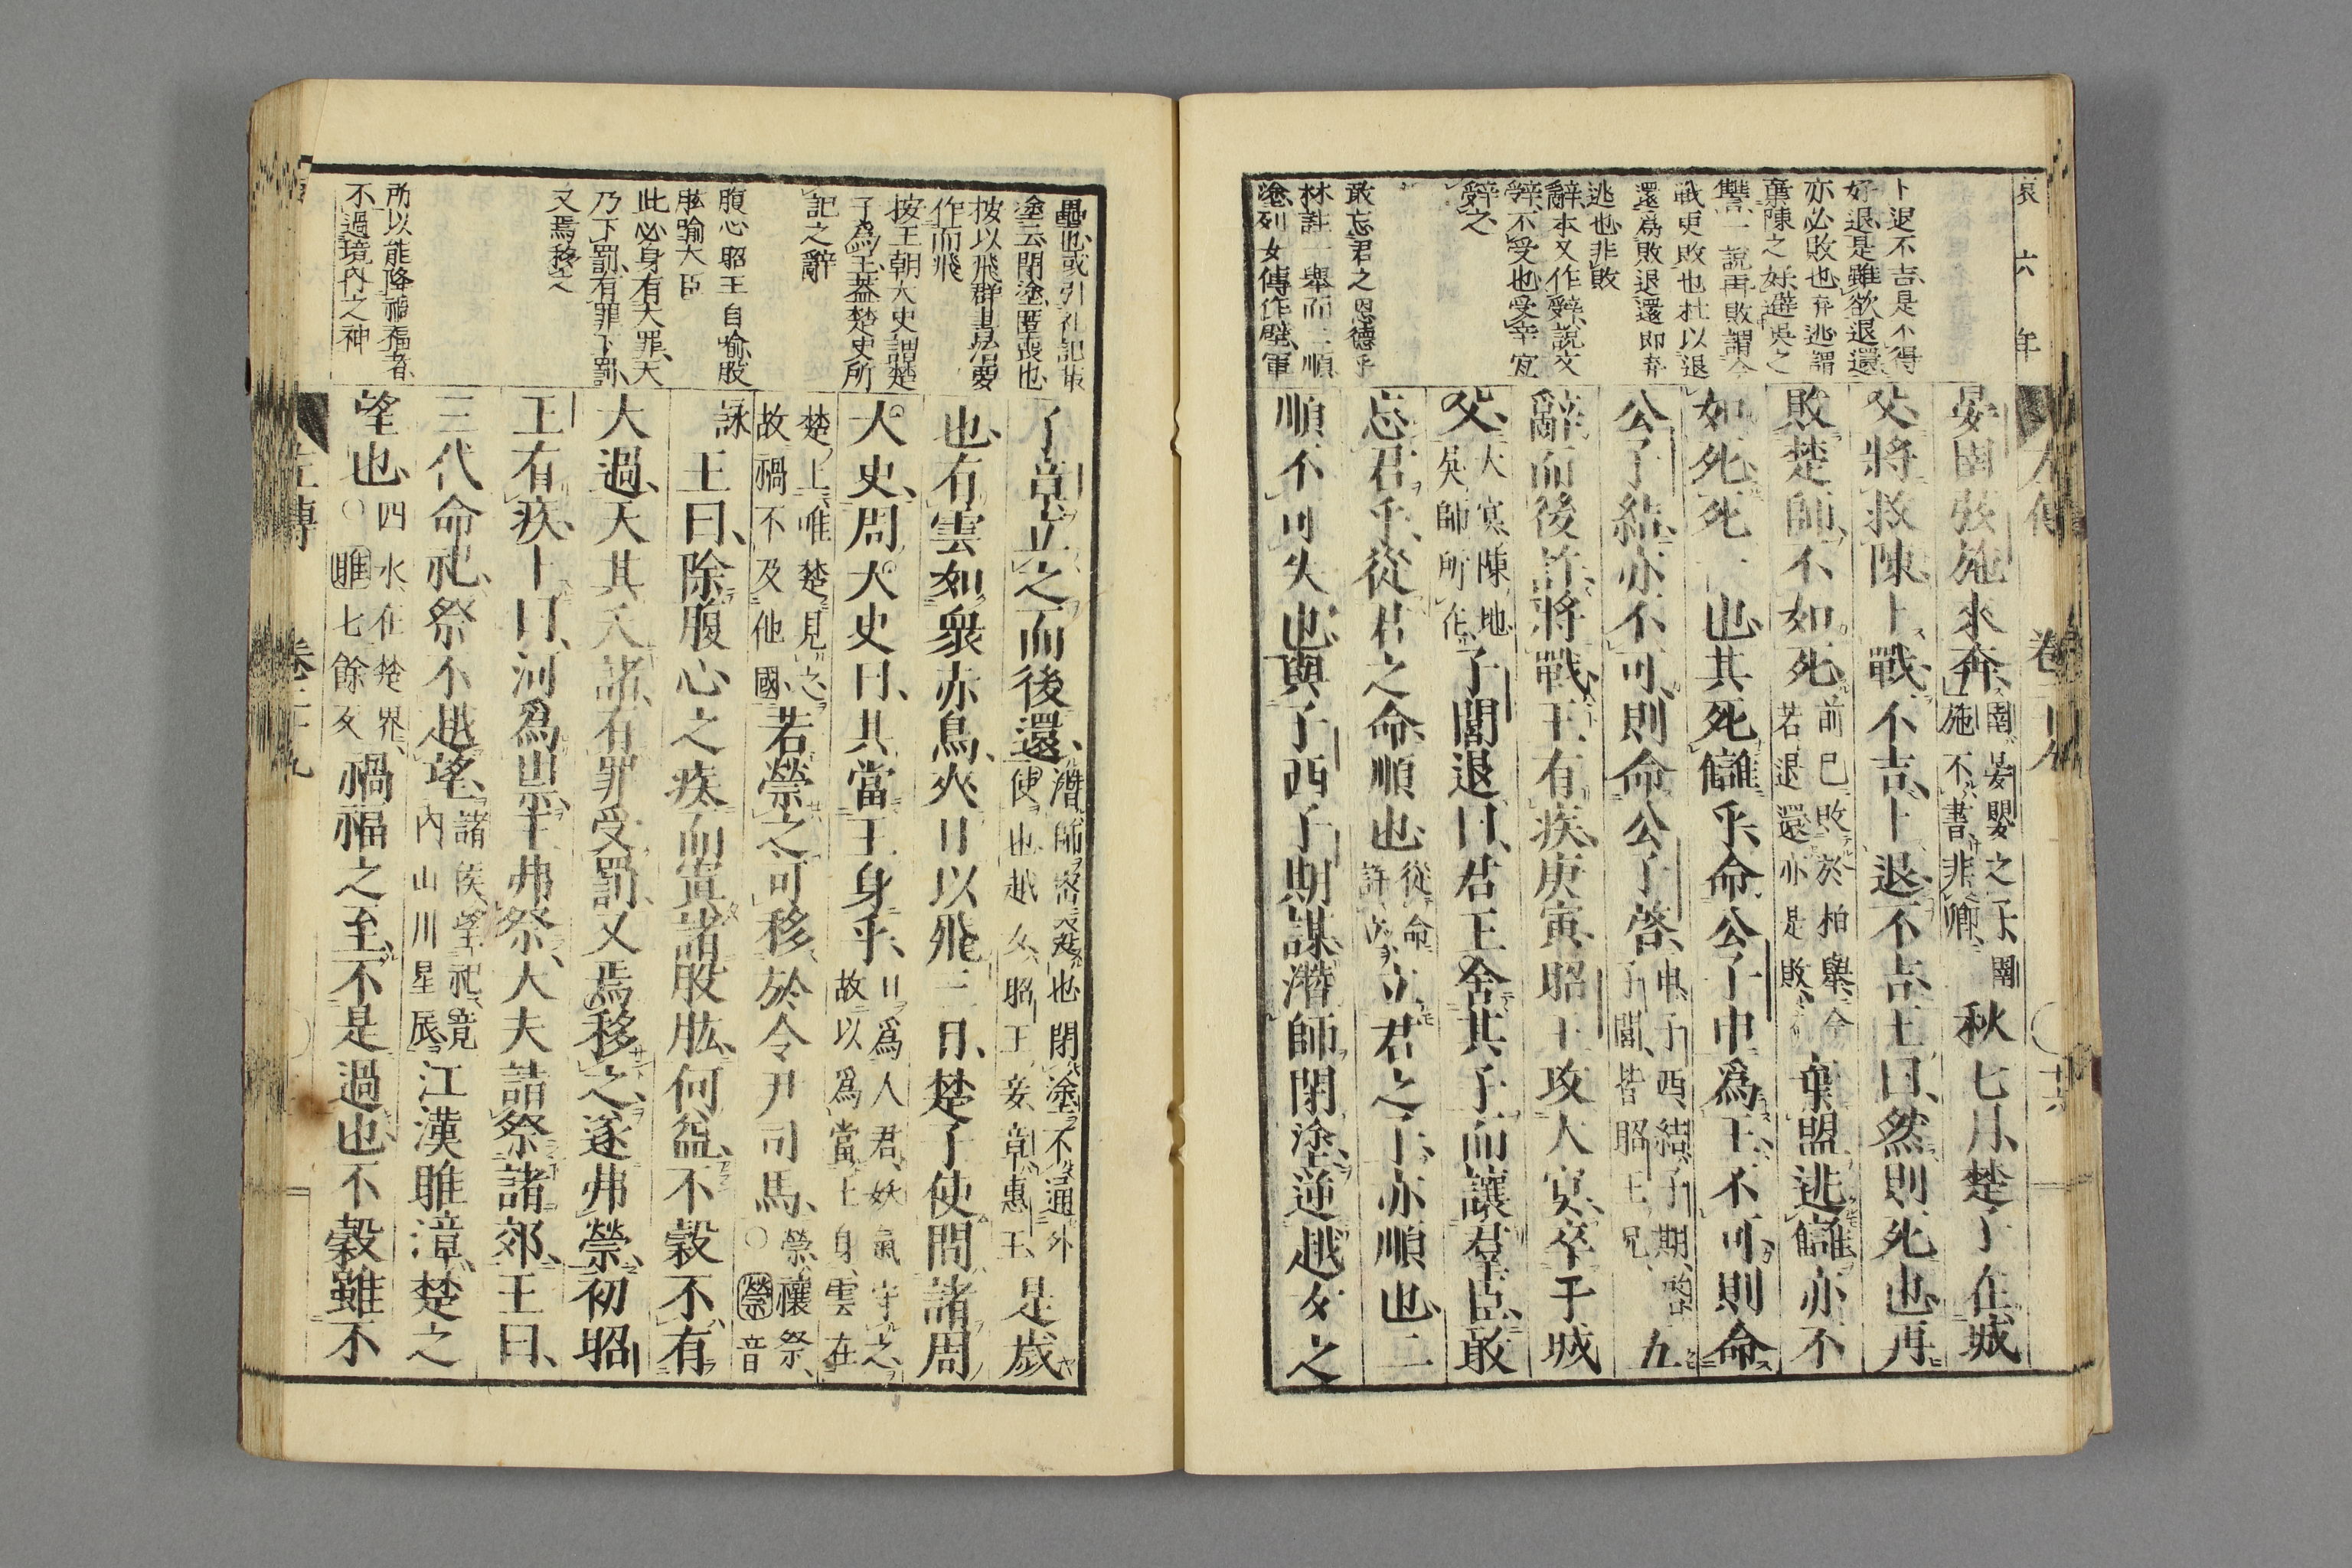 哀六年
卜退不吉是不得
好退是雖欲退還
亦必敗也弃逃謂
棄陳之好避吳之
讐一說再敗謂今
戰更敗也杜以退
還爲敗退還即弃
逃也非敗
辭本又作辤說文
辤不受也受辛宜
辤之
敢忘君之恩德乎
林註一舉而二順
塗列女傳作壁軍
左傳 卷二十九 十六
晏圉弦施來奔圉晏嬰之子圉施不書非卿秋七月楚子在城
父將救陳卜戰不吉卜退不吉王曰然則死也再
敗楚師不如死前已敗於柏舉今若退還亦是敗棄盟逃讎亦不
如死死一也其死讎乎命公子申爲王不可則命
公子結亦不可則命公子啓申子西結子期啓子閭皆昭王兄五
辭而後許將戰王有疾庚寅昭王攻大冥卒于城
父大冥陳地吳師所在子閭退曰君王舍其子而讓羣臣敢
忘君乎從君之命順也從命許立立君之子亦順也二
順不可失也與子西子期謀潛師閉塗逆越女之
壘也或引礼記菆
塗云閉塗匿喪也
按以飛群書治要
作而飛
按王朝大史謂楚
子爲王蓋楚史所
記之辭
腹心昭王自喻股
肱喻大臣
此必身有大罪天
乃下罰有罪下罰
又焉移之
所以能降禍福者
不過境內之神
子章立之而後還潛師密發也閉塗不通外使也越女昭王妾章惠王是歲
也有雲如衆赤鳥夾日以飛三日楚子使問諸周
大史周大史曰其當王身乎日爲人君妖氣守之故以爲當王身雲在
楚上唯楚見之故禍不及他國若禜之可移於令尹司馬禜禳祭○禜音
詠王曰除腹心之疾而寘諸股肱何益不穀不有
大過天其夭諸有罪受罰又焉移之遂弗禜初昭
王有疾卜曰河爲祟王弗祭大夫請祭諸郊王曰
三代命祀祭不越望諸侯望祀竟內山川星辰江漢雎漳楚之
望也四水在楚界○雎七餘反禍福之至不是過也不穀雖不
左傳 卷二十九